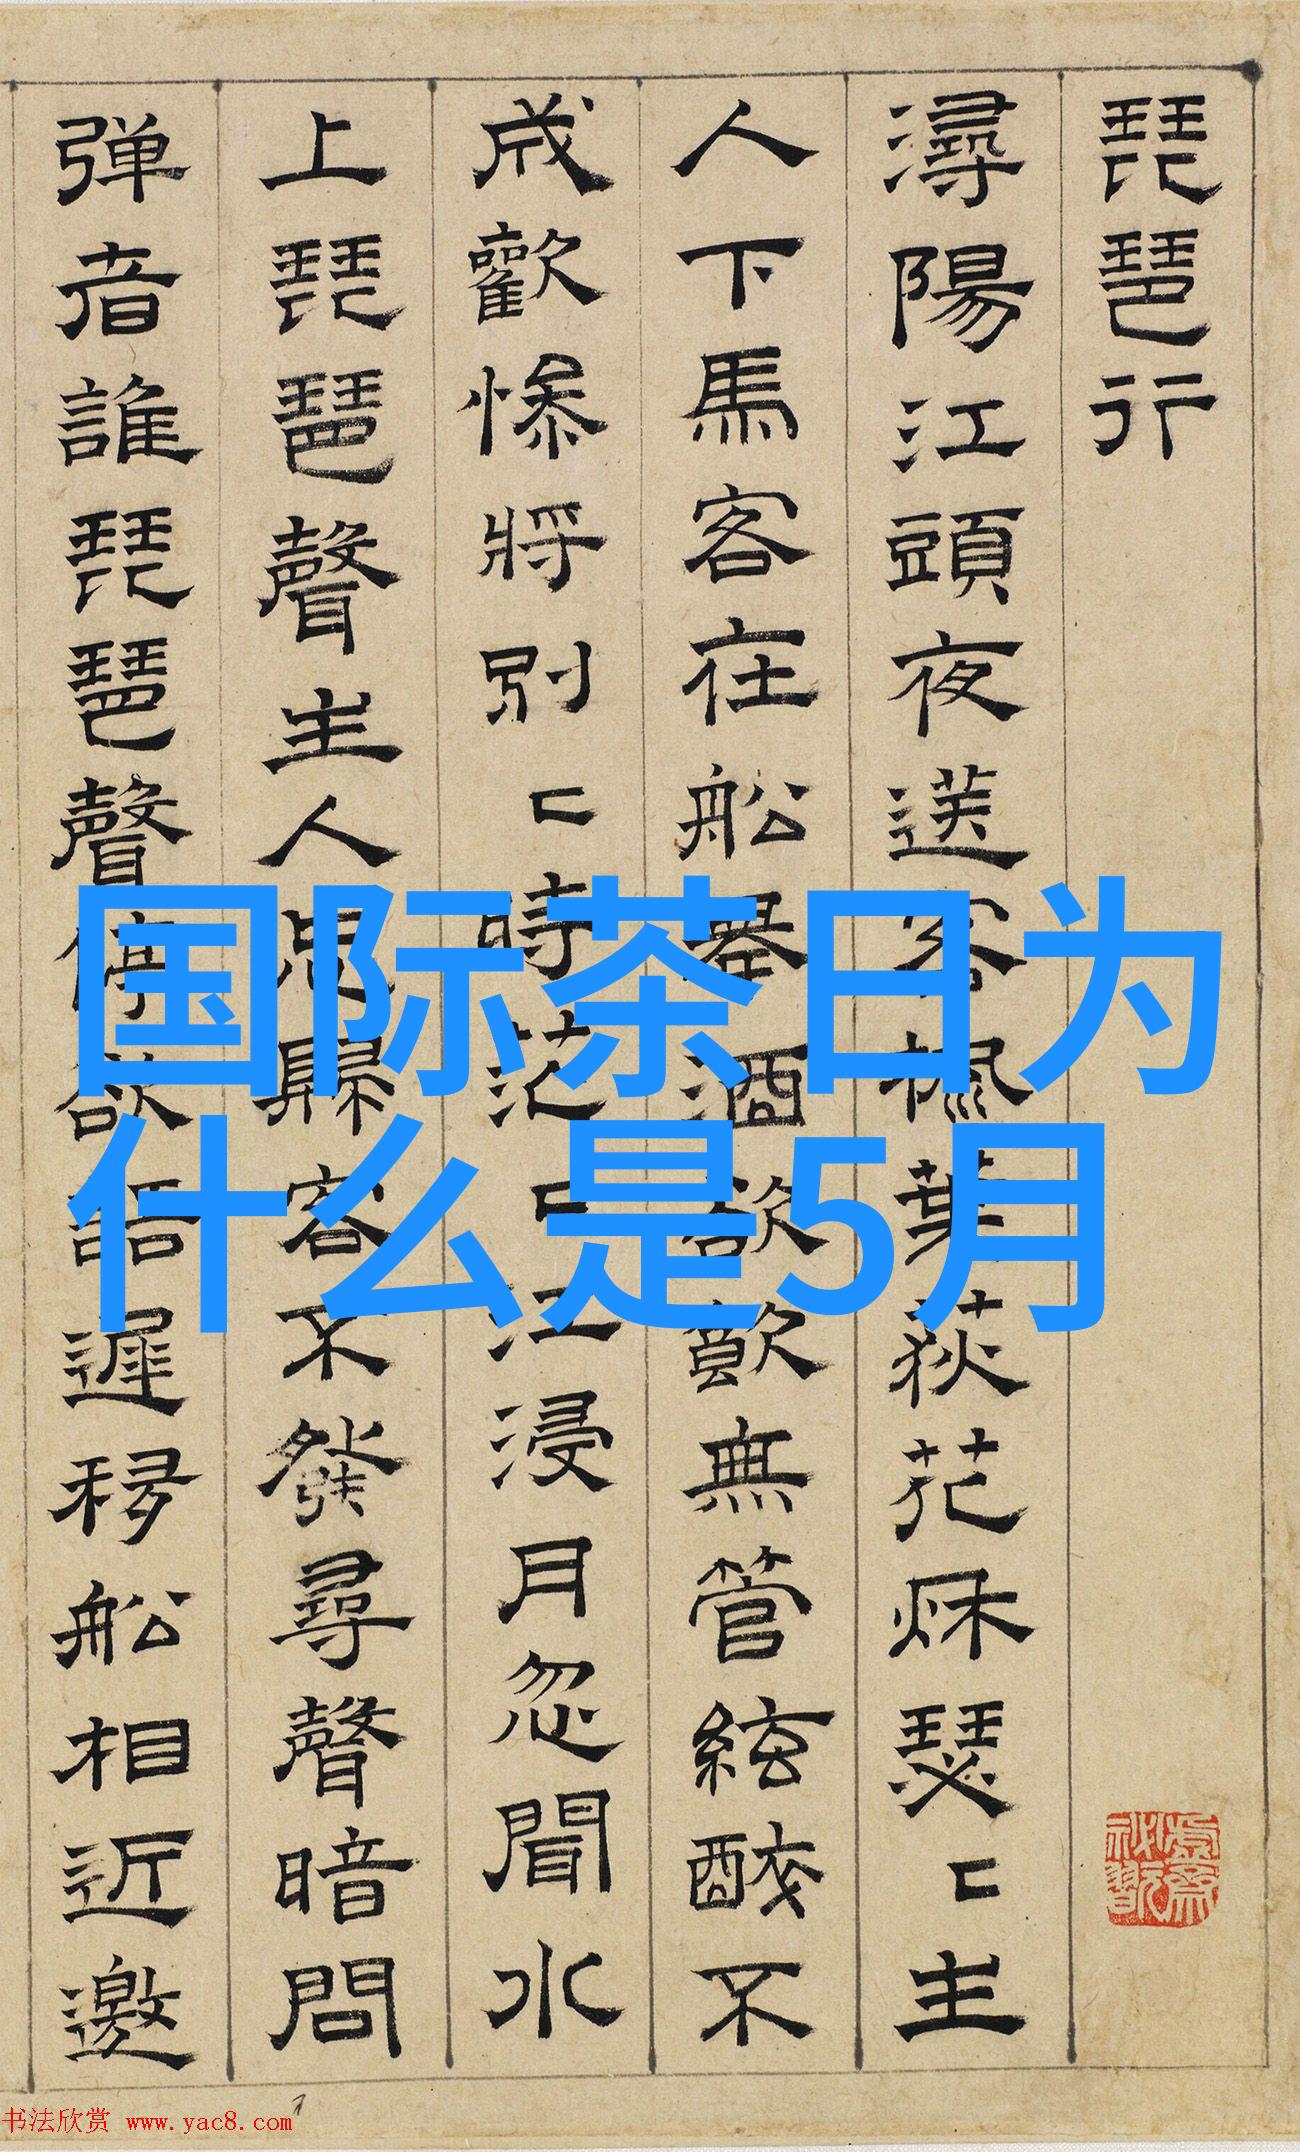 琵琶行
潯陽江頭夜送客楓葉荻花秌瑟〻主
人下馬客在船舉酒欲飲無管絃醉不
成歡慘將別〻時茫〻江浸月忽聞水
上琵琶聲主人忘歸客不發尋聲暗問
弹者誰琵琶聲停欲語遲移船相近邀
国际茶日为
什么是5月
书法欣赏 www.yac8.com